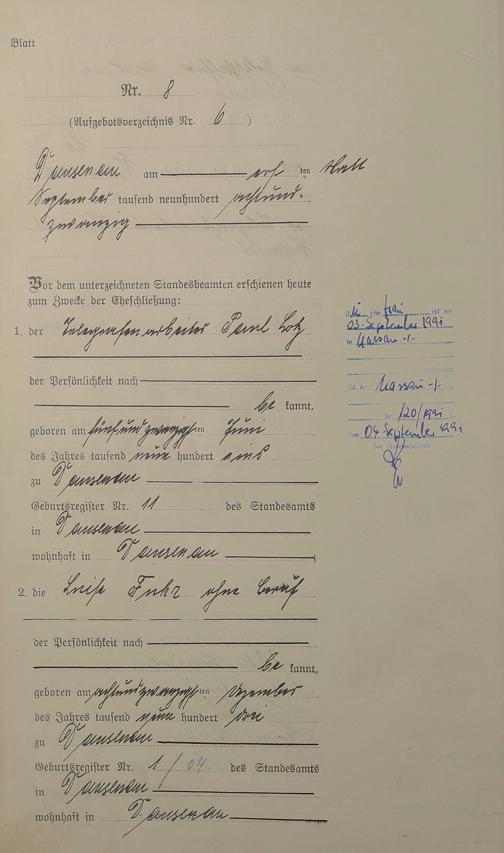 Blatt
Nr. 8
(Aufgebotsverzeichnis Nr. 6)
Dausenau am ten
September tausend neunhundert achtund-
zwanzig
Vor dem unterzeichneten Standesbeamten erschienen heute
zum Zwecke der Eheschließung:
1. der Telegrafenarbeiter Paul Lotz
der Persönlichkeit nach
be kannt,
geboren am fünfundzwanzigsten Juni
des Jahres tausend neun hundert eins
zu Dausenau
Geburtsregister Nr. 11 des Standesamts
in Dausenau
wohnhaft in Dausenau
2. die Luise ohne Beruf
der Persönlichkeit nach
be kannt,
geboren am achtundzwanzigsten Dezember
des Jahres tausend neun hundert drei
zu Dausenau
Geburtsregister Nr. 1/04 des Standesamts
in Dausenau
wohnhaft in Dausenau
Ehefrau ist am
03. September 1991
in Nassau -/-
Nassau -/-
Nr. 120/1991
04. September 1991